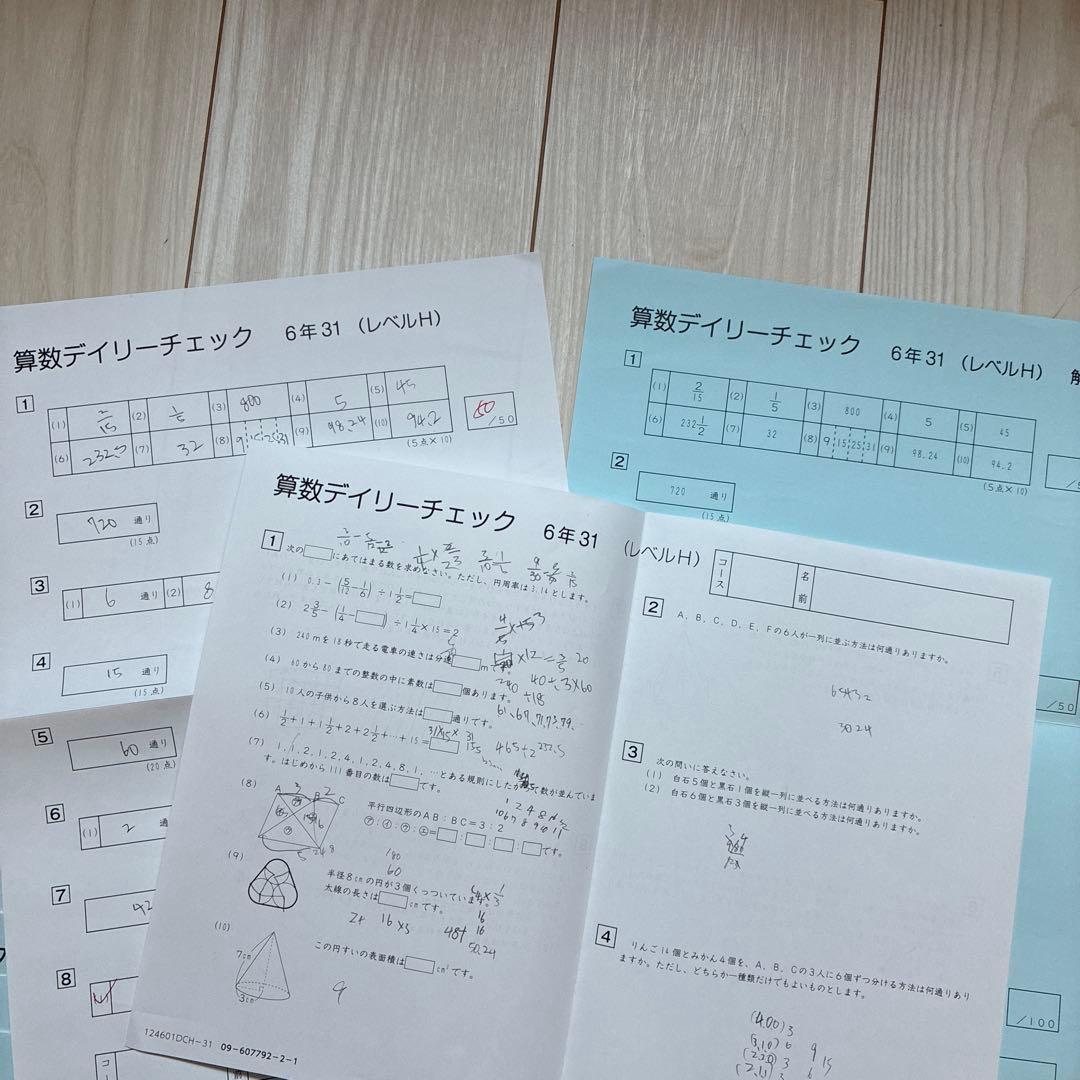 算数デイリーチェック 6年31 (レベルH)
1
(1) 2/15 (2) 1/5 (3) 800 (4) 5 (5) 45
(6) 232.5 (7) 32 (8) 9 15 25 31 (9) 98.24 (10) 94.2
(5点×10)
50 /50
2
720 通り
(15点)
3
(1) 6 通り (2) 8
4
15 通り
(15点)
5
60 通り
(20点)
6
(1) 2 通
7
42
8
コ
算数デイリーチェック 6年31 (レベルH) 解
1
(1) 2/15 (2) 1/5 (3) 800 (4) 5 (5) 45
(6) 232 1/2 (7) 32 (8) 9 15 25 31 (9) 98.24 (10) 94.2
(5点×10)
2
720 通り
(15点)
/50
/100
算数デイリーチェック 6年31 (レベルH)
コース 名前
1 次の□にあてはまる数を求めなさい。ただし、円周率は3.14とします。
(1) 0.3－(5/12－1/6)÷1 1/2＝□
(2) 2 3/5－(1/4－□)÷1 1/4×15＝2
(3) 240mを18秒で走る電車の速さは分速□m
(4) 60から80までの整数の中に素数は□個あります。
(5) 10人の子供から8人を選ぶ方法は□通りです。
(6) 1/2＋1＋1 1/2＋2＋2 1/2＋…＋15＝□
(7) 1, 1, 2, 1, 2, 4, 1, 2, 4, 8, 1, …とある規則にしたがって数が並んでいま
す。はじめから111番目の数は□です。
(8) A 3 B 2 C
平行四辺形のAB：BC＝3：2
㋐：㋑：㋒：㋓＝□：□：□：□です。
(9)
180
60
半径8cmの円が3個くっついています。
太線の長さは□cmです。
16×3
48+
16
16
50.24
(10)
7cm
3cm
この円すいの表面積は□cm²です。
9
124601DCH－31 09－607792－2－1
2 A, B, C, D, E, Fの6人が一列に並ぶ方法は何通りありますか。
65432
3024
3 次の問いに答えなさい。
(1) 白石5個と黒石1個を縦一列に並べる方法は何通りありますか。
(2) 白石6個と黒石3個を縦一列に並べる方法は何通りありますか。
4 りんご14個とみかん4個を、A, B, Cの3人に6個ずつ分ける方法は何通りあり
ますか。ただし、どちらか一種類だけでもよいものとします。
(4.00)3
(3,1,0)6 9 15
(2,2,0)3
(2,1,1)3